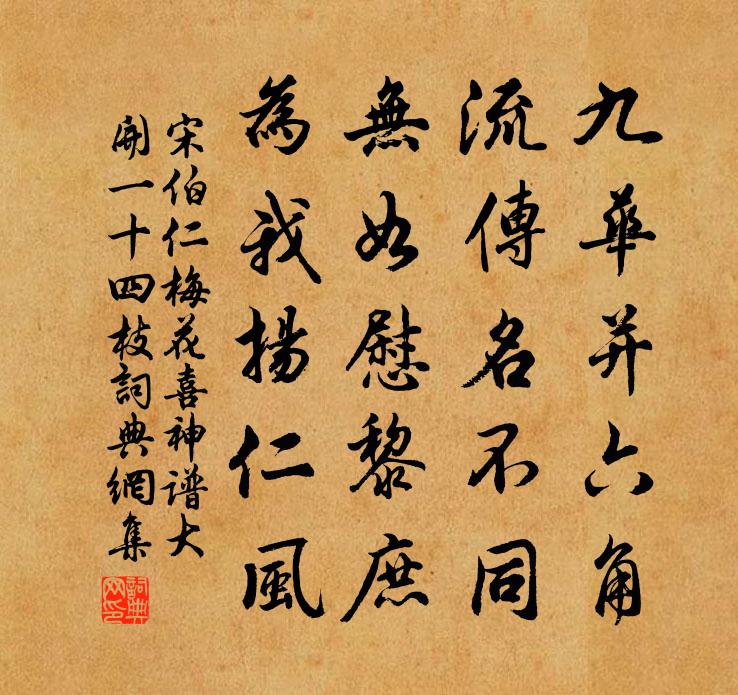 九華并六角
流傳名不同
無如慰黎庶
為我揚仁風
宋伯仁梅花喜神谱大
開一十四枝詞典網集
詞典網印